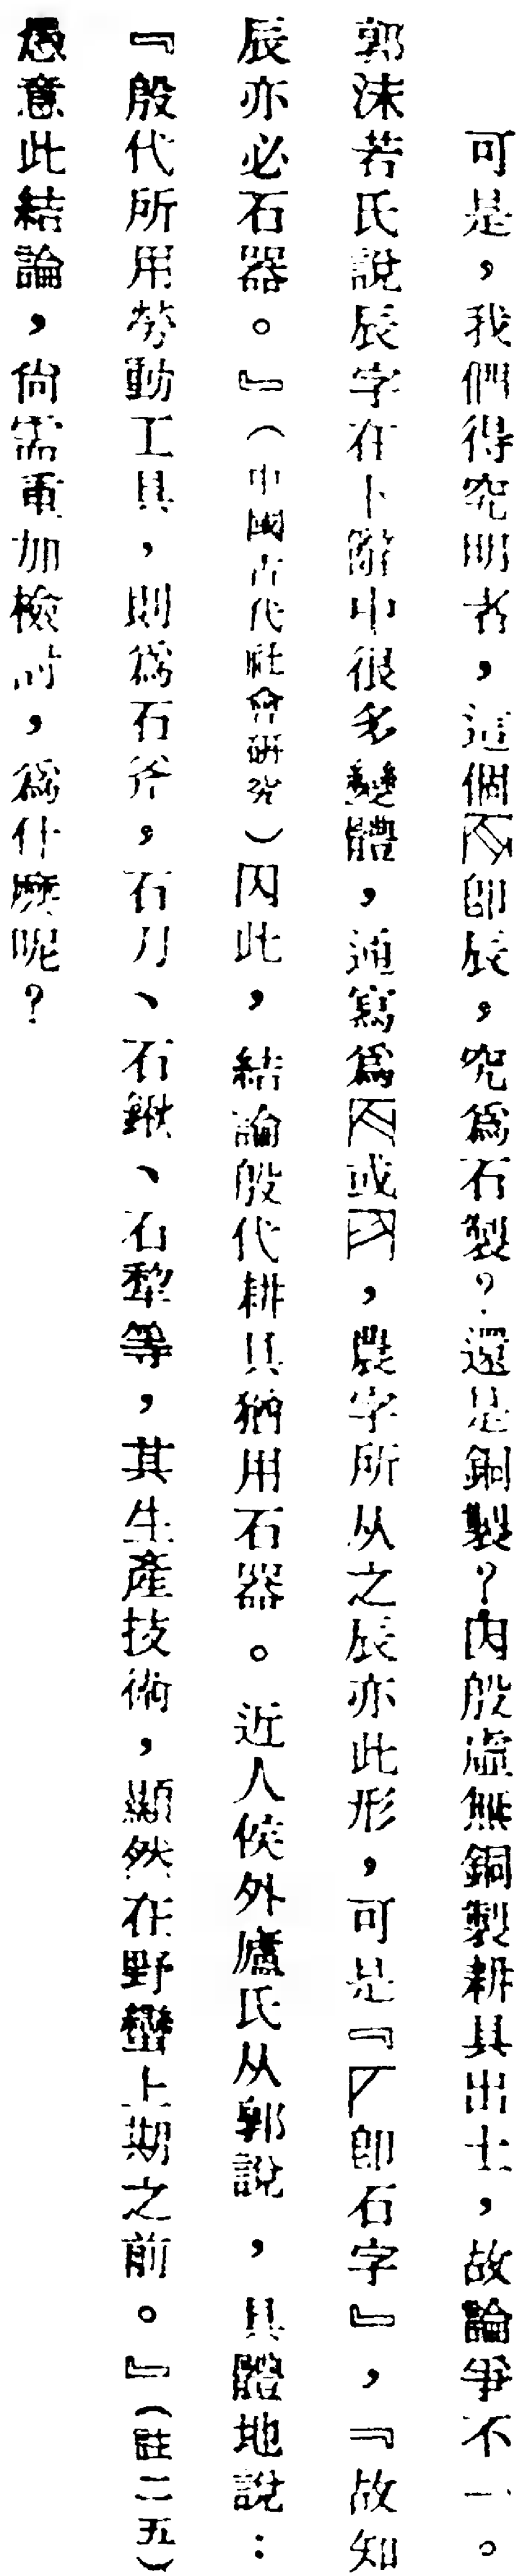 可是，我們得究明者，這個即辰，究爲石製？還是銅製？因殷虛無銅製耕具出土，故論爭不一。
郭沫若氏說辰字在卜辭中很多變體，通寫爲或，農字所从之辰亦此形，可是『即石字』，『故知
辰亦必石器。』（中國古代社會研究）因此，結論殷代耕具猶用石器。近人侯外廬氏从郭說，具體地說：
『殷代所用勞動工具，則爲石斧，石刀、石鍬、石犂等，其生產技術，顯然在野蠻上期之前。』（註二五）
愚意此結論，尙需重加檢討，爲什麽呢？